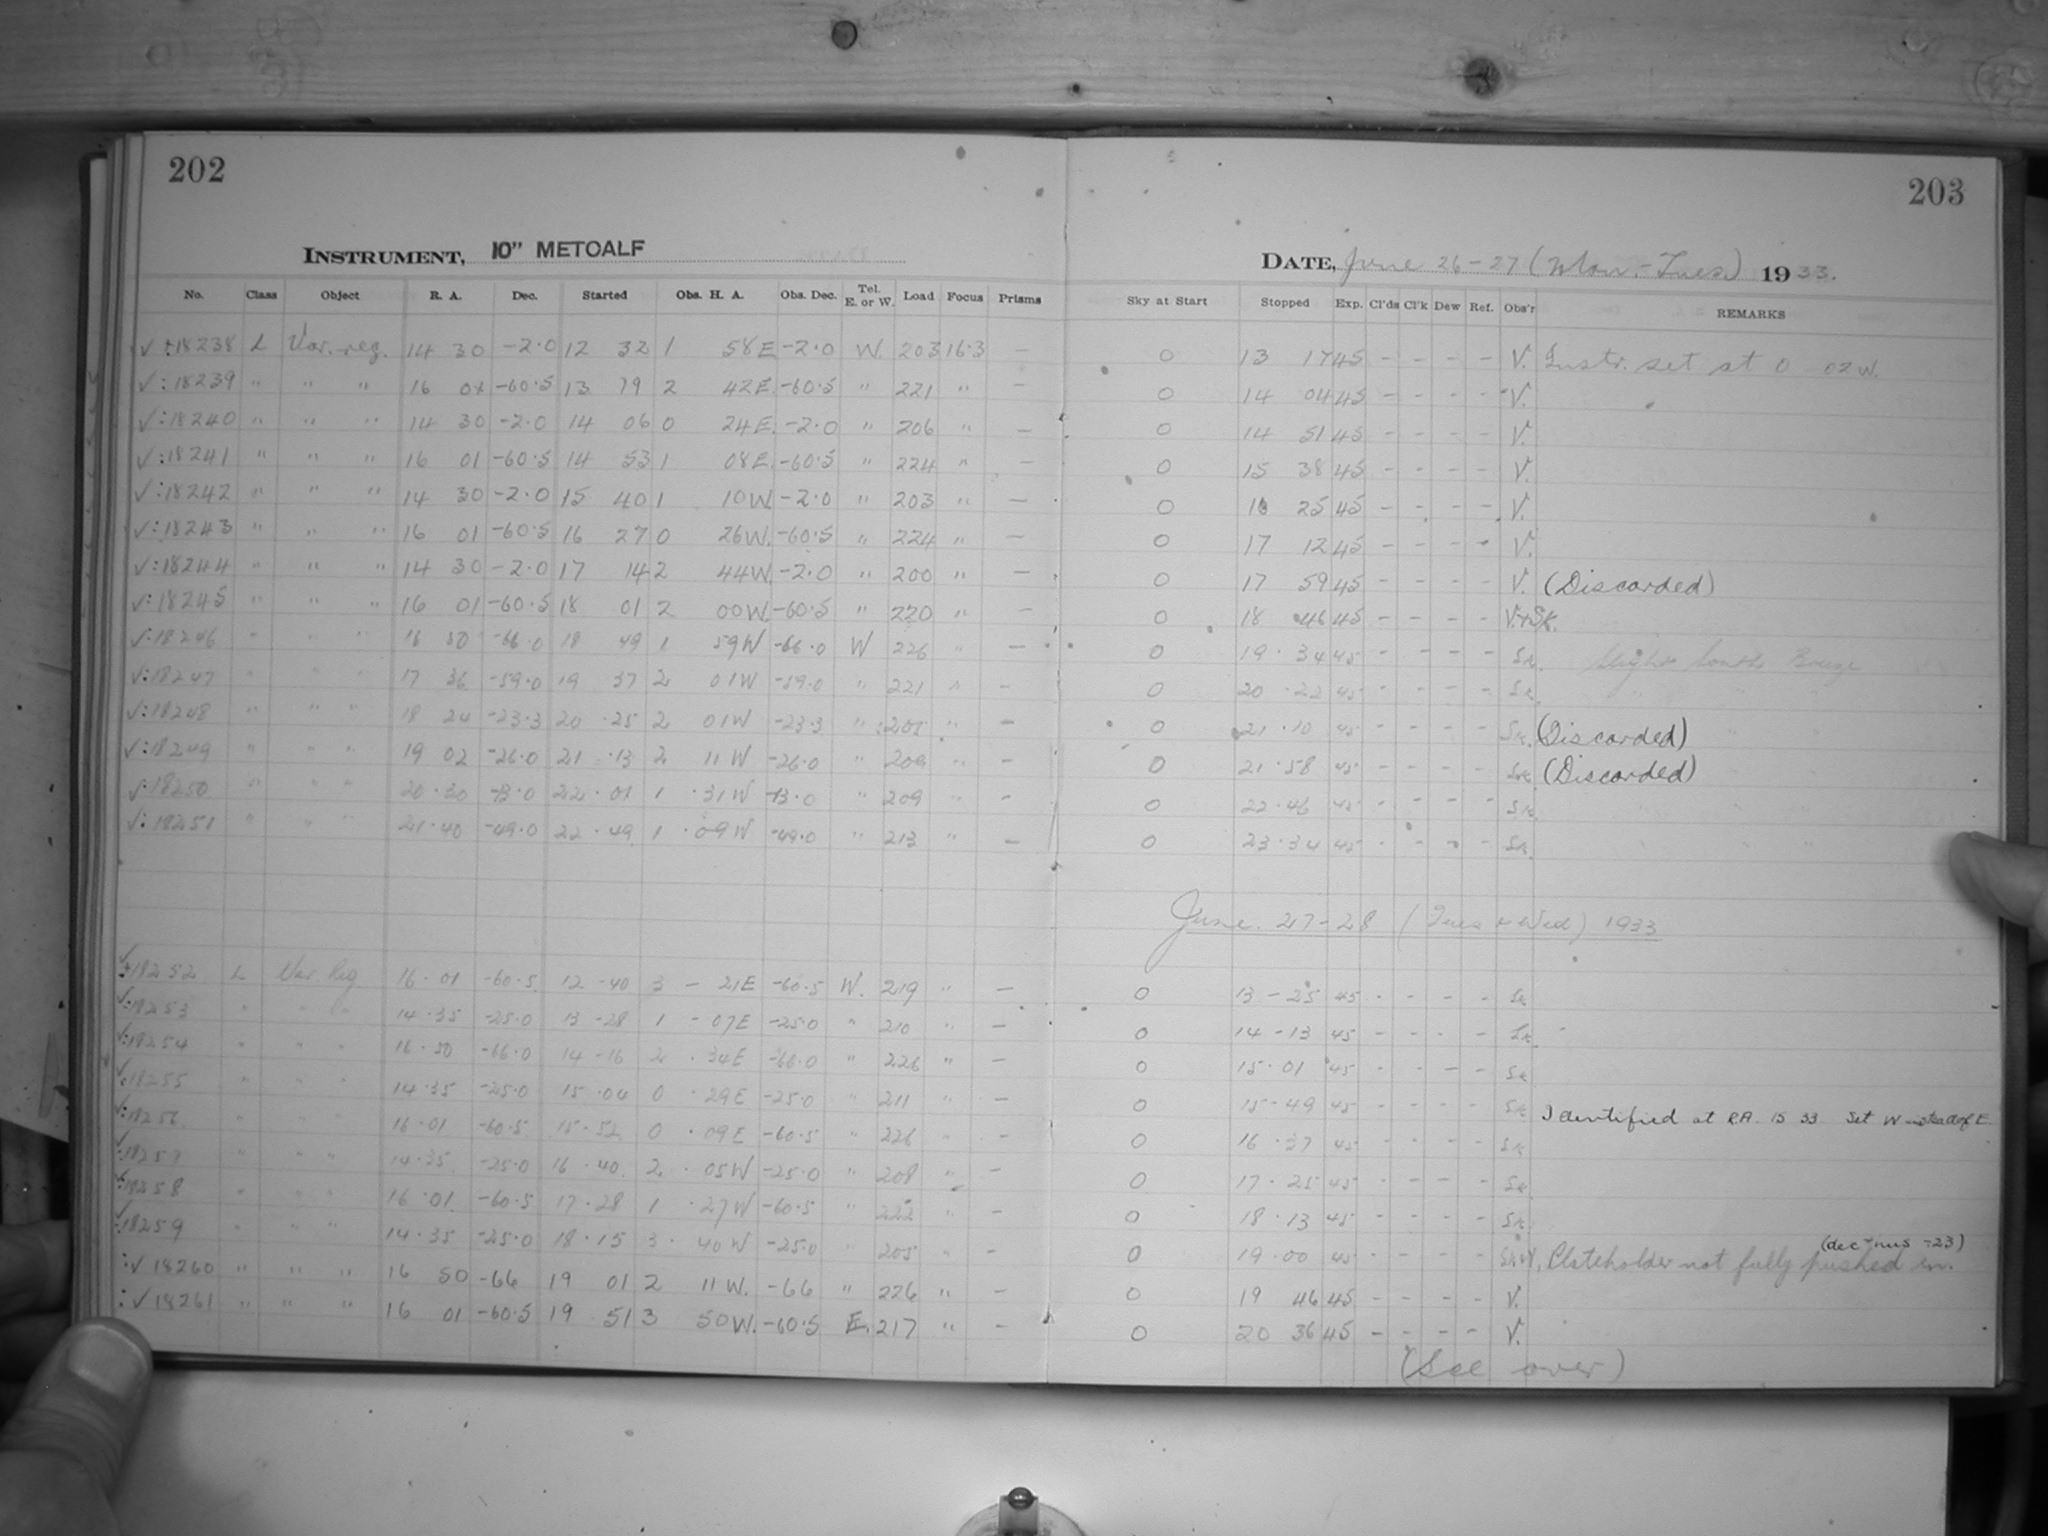 202
203
INSTRUMENT, 10" METCALF
DATE, June 26-27 (Mon.-Tues) 1933.
No. Class Object R. A. Dec. Started Obs. H. A. Obs. Dec. Tel. E. or W. Load Focus Prisms Sky at Start Stopped Exp. Cl'ds Cl'k Dew Ref. Obs'r REMARKS
✓ 18238 L Var. reg. 14 30 -2.0 12 32 1 58E -2.0 W. 203 16.3 — 0 13 17 45 - - - - V. Instr. set at 0 02W.
✓: 18239 " " " 16 01 -60.5 13 19 2 42E. -60.5 " 221 " — 0 14 04 45 - - - - V.
✓: 18240 " " " 14 30 -2.0 14 06 0 24E. -2.0 " 206 " — 0 14 51 45 - - - - V.
✓: 18241 " " " 16 01 -60.5 14 53 1 08E. -60.5 " 224 " — 0 15 38 45 - - - - V.
✓: 18242 " " " 14 30 -2.0 15 40 1 10W -2.0 " 203 " — 0 16 25 45 - - - - V.
✓: 18243 " " " 16 01 -60.5 16 27 0 26W. -60.5 " 224 " — 0 17 12 45 - - - - V.
✓: 18244 " " " 14 30 -2.0 17 14 2 44W. -2.0 " 200 " — 0 17 59 45 - - - - V. (Discarded)
✓: 18245 " " " 16 01 -60.5 18 01 2 00W. -60.5 " 220 " — 0 18 46 45 - - - - V.+SK.
✓: 18246 " " " 16 50 -66.0 18 49 1 59W -66.0 W 226 " — 0 19.34 45 - - - - SK. Slight South Breeze
✓: 18247 " " " 17 36 -59.0 19 37 2 01W -59.0 " 221 " — 0 20.22 45 - - - - SK. " " "
✓: 18248 " " " 18 24 -23.3 20.25 2 01W -23.3 " 205 " — 0 21.10 45 - - - - SK. (Discarded)
✓: 18249 " " " 19 02 -26.0 21.13 2 11W -26.0 " 206 " — 0 21.58 45 - - - - SK (Discarded)
✓: 18250 " " " 20.30 -13.0 22.01 1 .31W -13.0 " 209 " — 0 22.46 45 - - - - SK
✓: 18251 " " " 21.40 -49.0 22.49 1 .09W -49.0 " 213 " — 0 23.34 45 - - - - SK.
June. 27-28 (Tues & Wed) 1933
✓ 18252 L Var. Reg 16.01 -60.5 12-40 3 - 21E -60.5 W. 219 " — 0 13-25 45 - - - - SK
✓: 18253 " " " 14.35 -25.0 13-28 1 - 07E -25.0 " 210 " — 0 14-13 45 - - - - SK.
✓: 18254 " " " 16.50 -66.0 14-16 2 .34E -66.0 " 226 " — 0 15.01 45 - - - - SK
✓: 18255 " " " 14.35 -25.0 15.04 0 .29E -25.0 " 211 " — 0 15-49 45 - - - - SK Identified at R.A. 15 33 Set W instead of E.
✓: 18256 " " " 16.01 -60.5 15-52 0 .09E -60.5 " 226 " — 0 16.37 45 - - - - SK
✓: 18257 " " " 14.35 -25.0 16.40 2 .05W -25.0 " 208 " — 0 17.25 45 - - - - SK
✓: 18258 " " " 16.01 -60.5 17.28 1 .27W -60.5 " 222 " — 0 18.13 45 - - - - SK
✓ 18259 " " " 14.35 -25.0 18.15 3. 40W -25.0 " 205 " — 0 19.00 45 - - - - SK+V. Plateholder not fully pushed in. (dec minus -23)
:✓ 18260 " " " 16 50 -66 19 01 2 11W. -66 " 226 " — 0 19 46 45 - - - - V.
:✓ 18261 " " " 16 01 -60.5 19 51 3 50W. -60.5 E. 217 " — 0 20 36 45 - - - - V.
(See over)